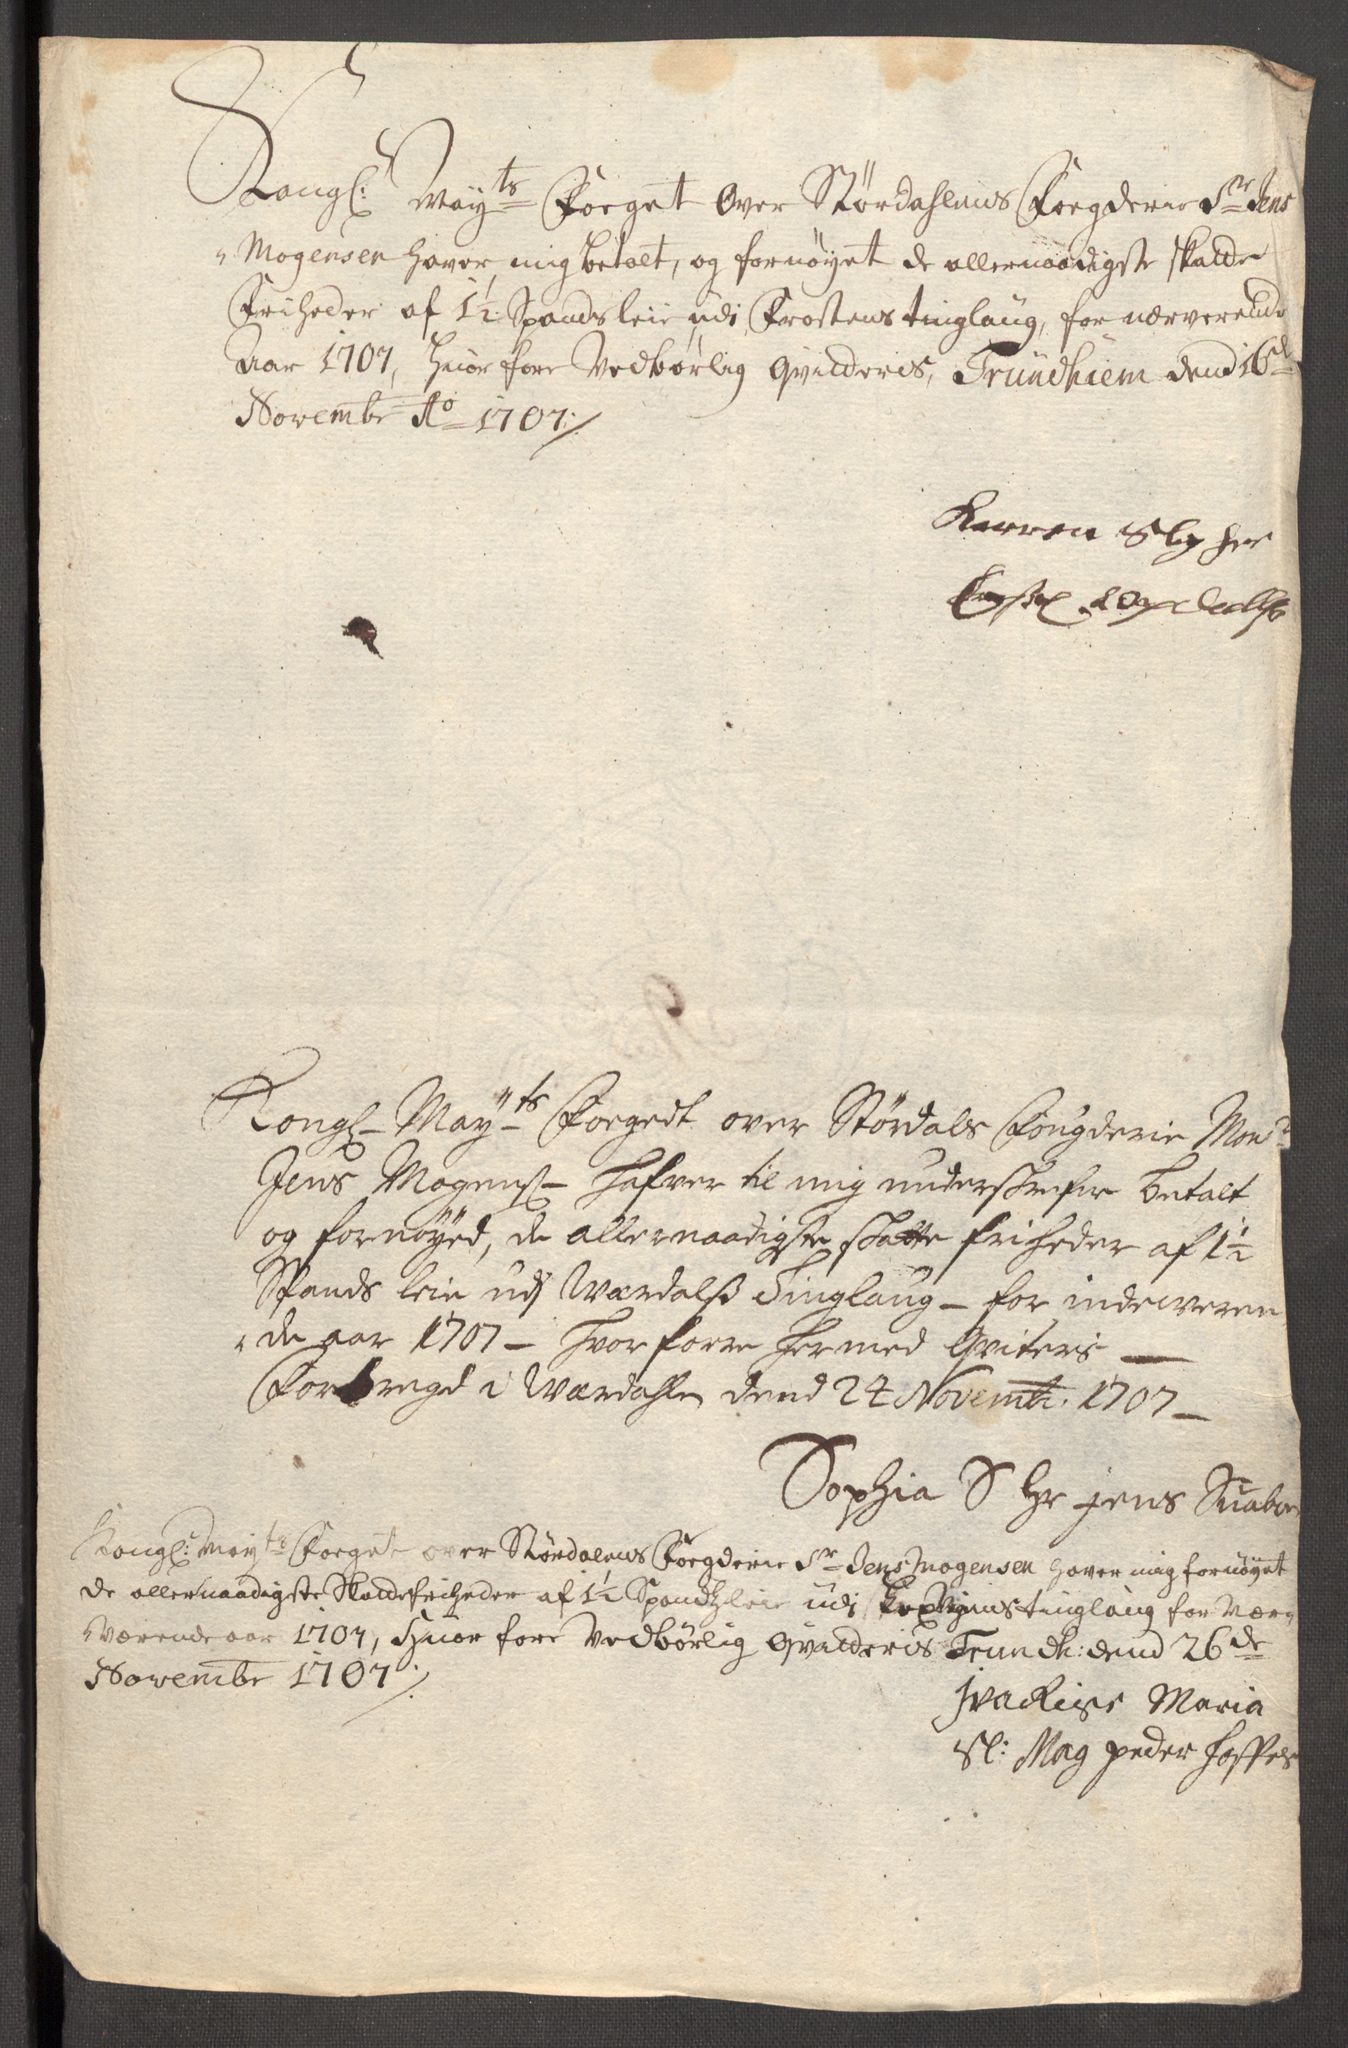 Kongl: Mayts Foeget Over Størdahlens Foegderie Sr Jens
Mogensen haver mig betalt, og fornøyet de allernaadigste skatde
Friheder af 1½ Spands leie udi Frostens tinglaug, for nærverende
Aar 1707, huor fore Vedbørlig Qvitderis, Trundhiem dend 16de
Novembr Ao 1707 ./
Karren Slg her
Kongl- Mayts Foegedt over Størdals Fougderie Monsr
Jens Mogens- hafver til mig underskrefne betalt
og fornøyed, de allernaadigste skatte friheder af 1½
Spands leie udj Wærdalß Tinglaug- for indeweren
de aar 1707- hvor forre hermed Qviteris —
Forbregd i Wærdahlen dend 24 Novembr. 1707 —
Sophia S Hr jens Suabo
Kongl: Mayts Foeget over Størdalens Foegderie Sr Jens Mogensen haver mig fornøyet
de allernaadigste Skattefriheder af 1½ Spandsleie udi tinglaug for Nær
værende aar 1707, Huor fore Vedbørlig Qvitderis Trundh: dend 26de
Novembr 1707 ./
Maria
Sl: Mag peder